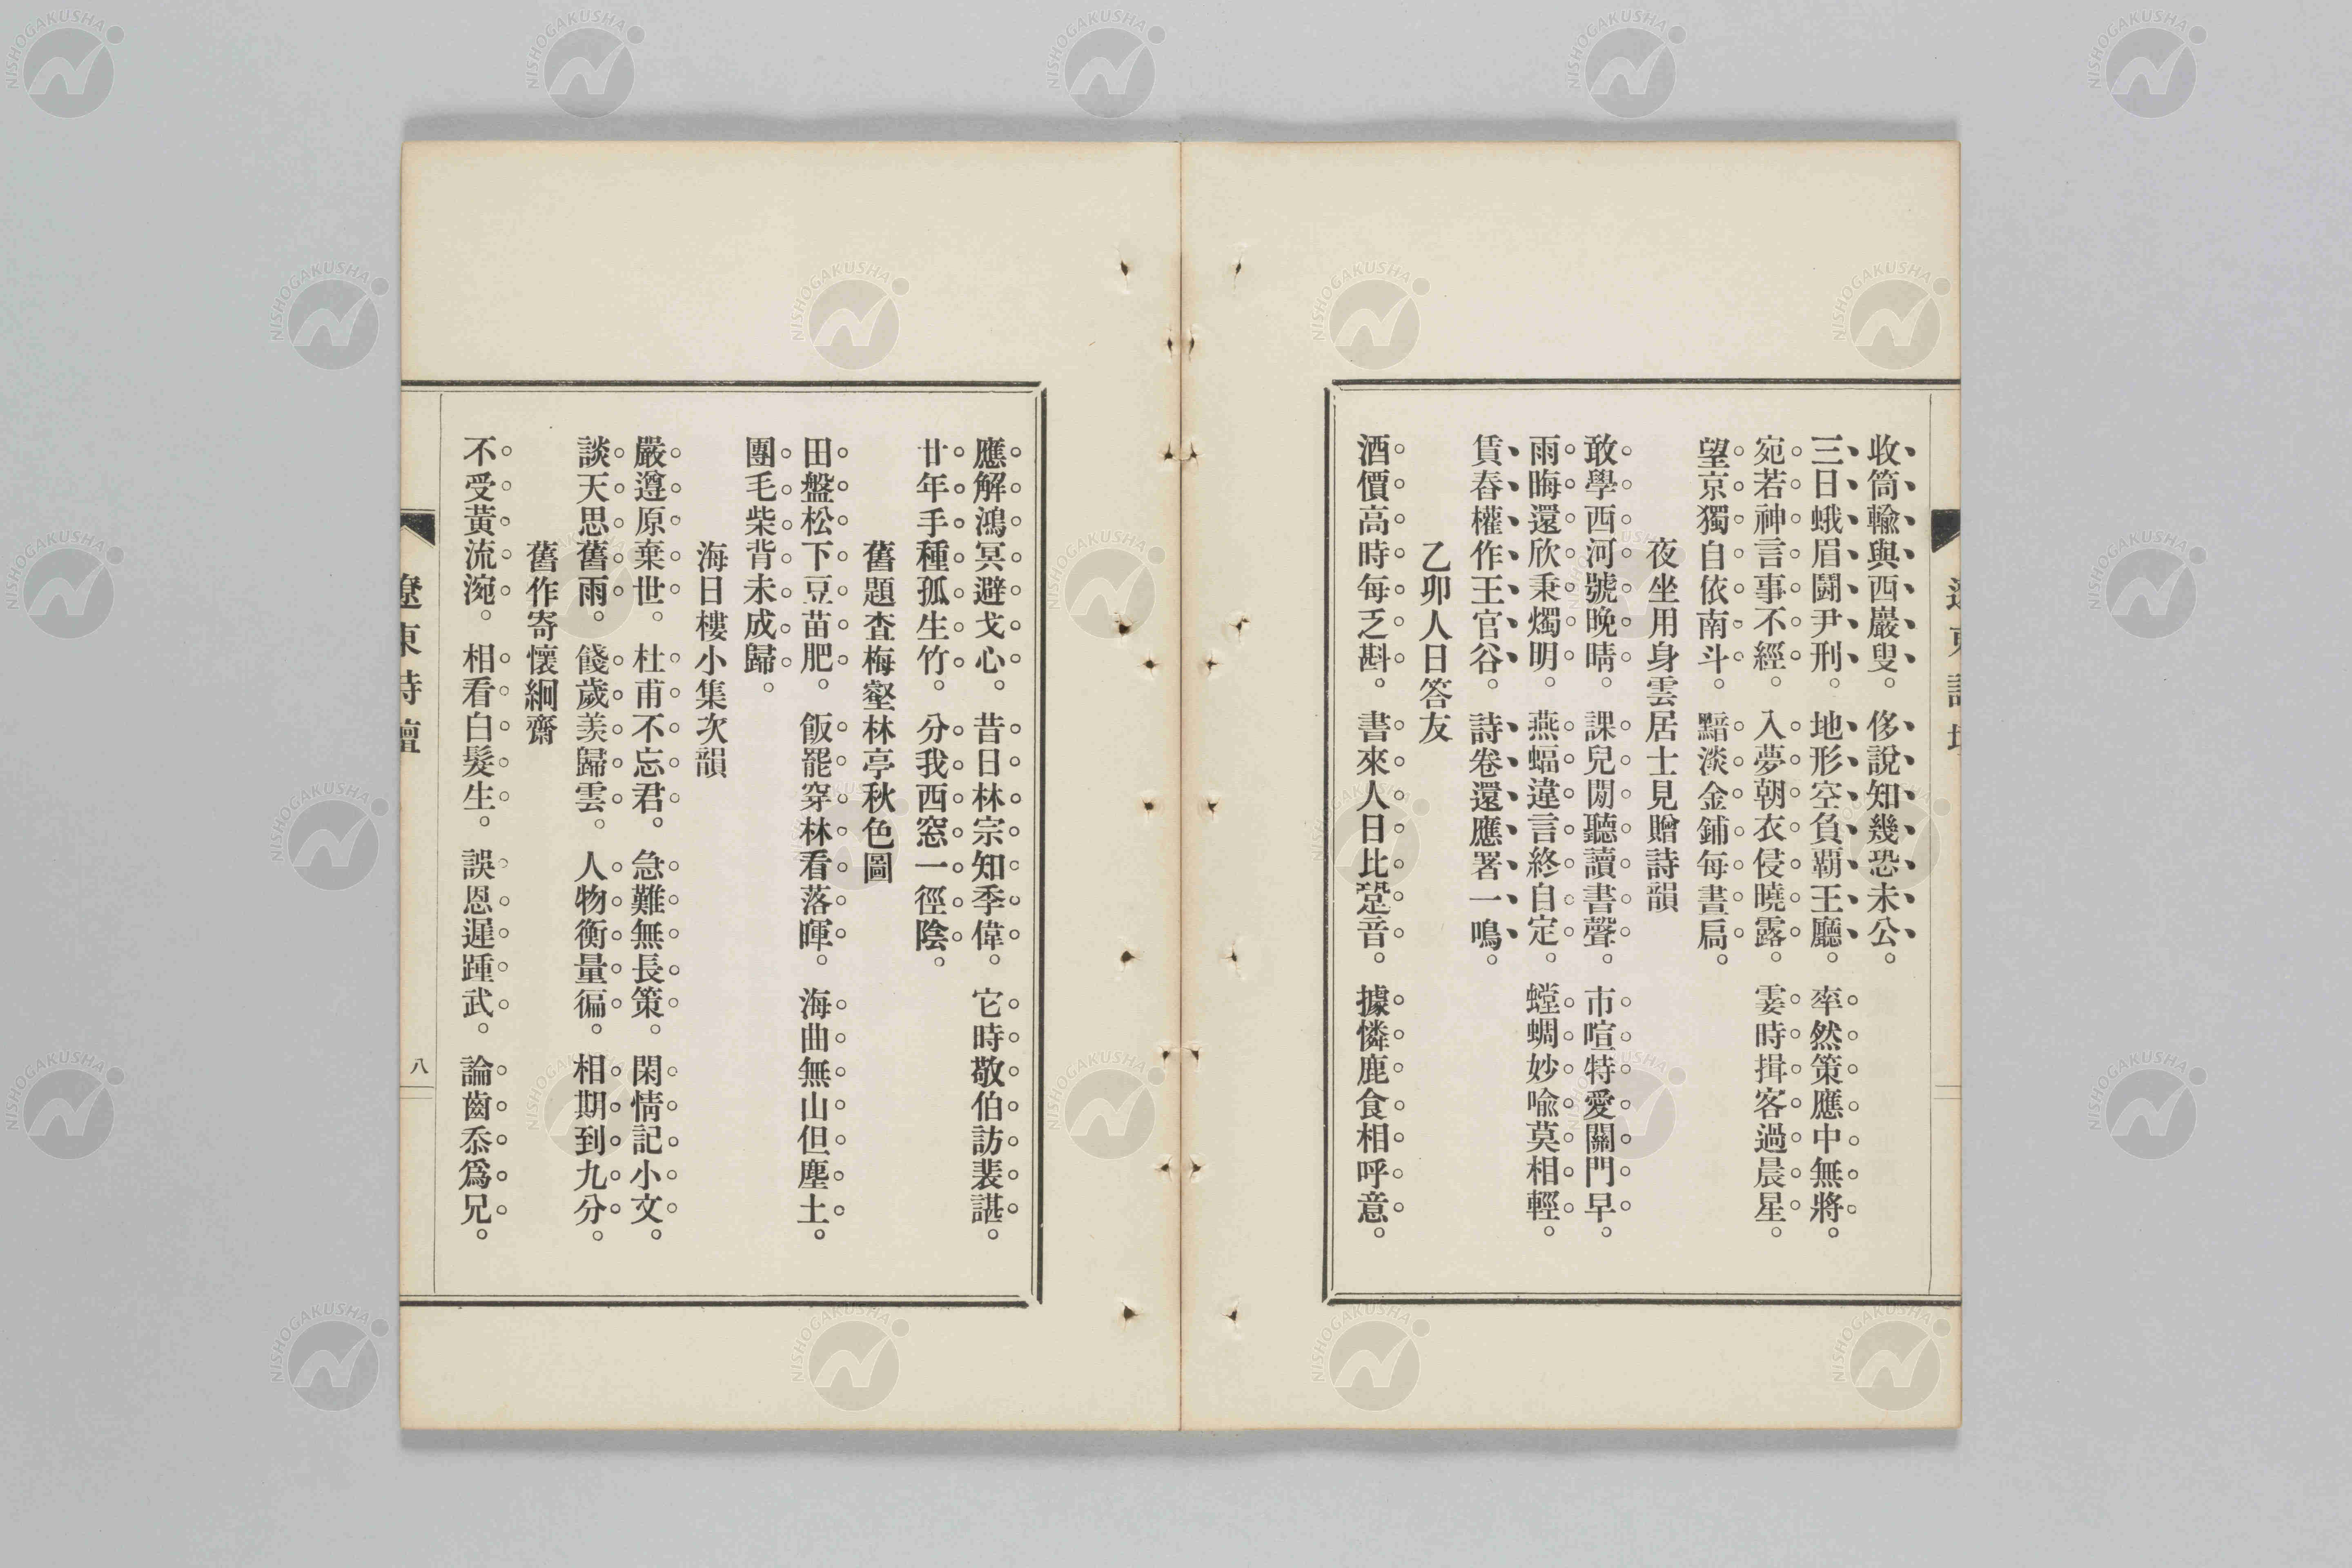 收筒輸與西巖叟。侈說知幾恐未公。
三日蛾眉鬪尹刑。地形空負覇王廳。率然策應中無將。
宛若神言事不經。入夢朝衣侵曉露。霎時揖客過晨星。
望京獨自依南斗。黯淡金鋪每晝扃。
夜坐用身雲居士見贈詩韻
敢學西河號晚晴。課兒閒聽讀書聲。市喧特愛關門早。
雨晦還欣秉燭明。燕蝠違言終自定。螳蜩妙喩莫相輕。
賃舂權作王官谷。詩卷還應署一鳴。
乙卯人日答友
酒價高時每乏斟。書來人日比跫音。據憐鹿食相呼意。
應解鴻冥避戈心。昔日林宗知季偉。它時敬伯訪裴諶。
廿年手種孤生竹。分我西窓一徑陰。
舊題査梅壑林亭秋色圖
田盤松下豆苗肥。飯罷穿林看落暉。海曲無山但塵土。
團毛柴背未成歸。
海日樓小集次韻
嚴遵原棄世。杜甫不忘君。急難無長策。閑情記小文。
談天思舊雨。餞歲羨歸雲。人物衡量徧。相期到九分。
舊作寄懷絅齋
不受黃流涴。相看白髮生。誤恩遲踵武。論齒忝爲兄。
遼東詩壇
八
NISHOGAKUSHA